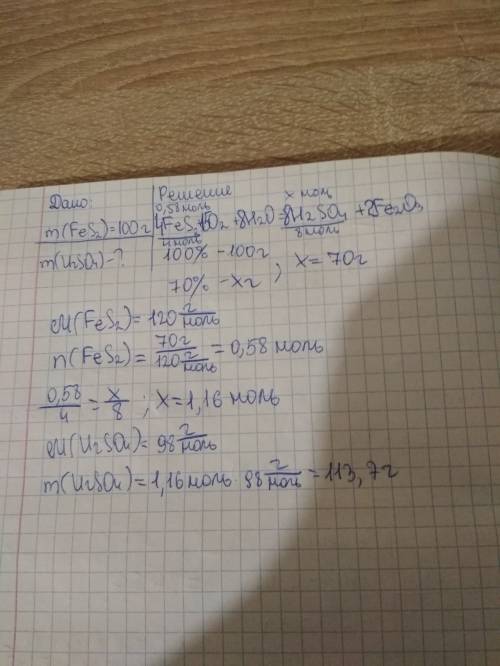 Дано:
Решение
m(FeS₂)=100г
0,58 моль x моль
4FeS₂+15O₂+8H₂O=8H₂SO₄+2Fe₂O₃
4моль 8моль
m(H₂SO₄)-?
100% - 100г
70% - xг ; x=70г
M(FeS₂)=120 г/моль
n(FeS₂)= 70г/120 г/моль =0,58 моль
0,58/4 = x/8 ; x=1,16 моль
M(H₂SO₄)=98 г/моль
m(H₂SO₄)=1,16моль · 98 г/моль =113,7г